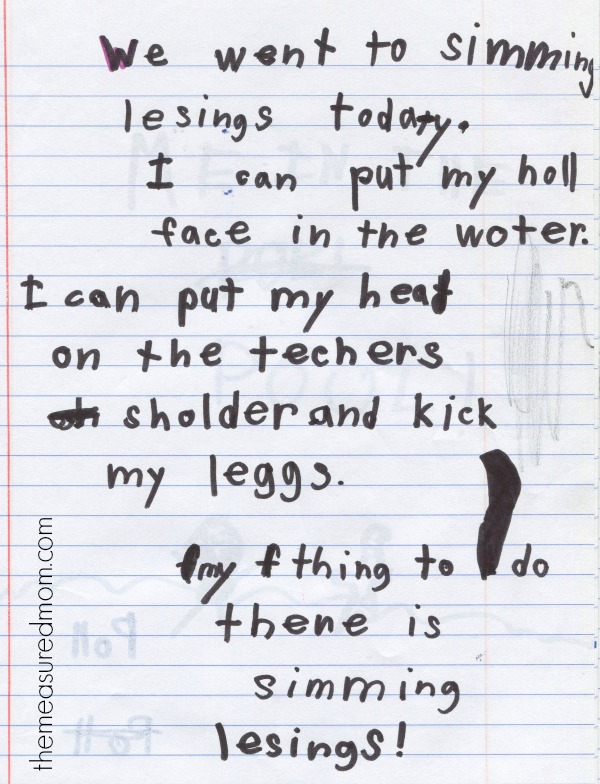 We went to simming
lesings today.
I can put my holl
face in the woter.
I can put my head
on the techers
sholder and kick
my leggs.
my f thing to do
there is
simming
lesings!
themeasuredmom.com